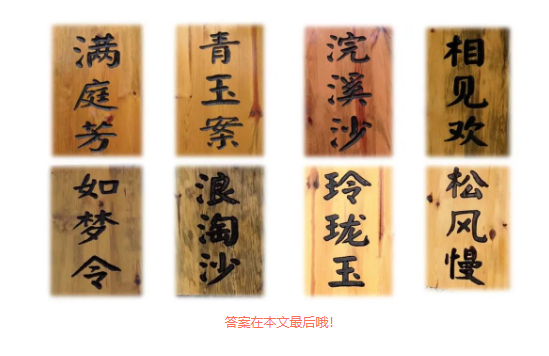 满庭芳
青玉案
浣溪沙
相见欢
如梦令
浪淘沙
玲珑玉
松风慢
答案在本文最后哦!